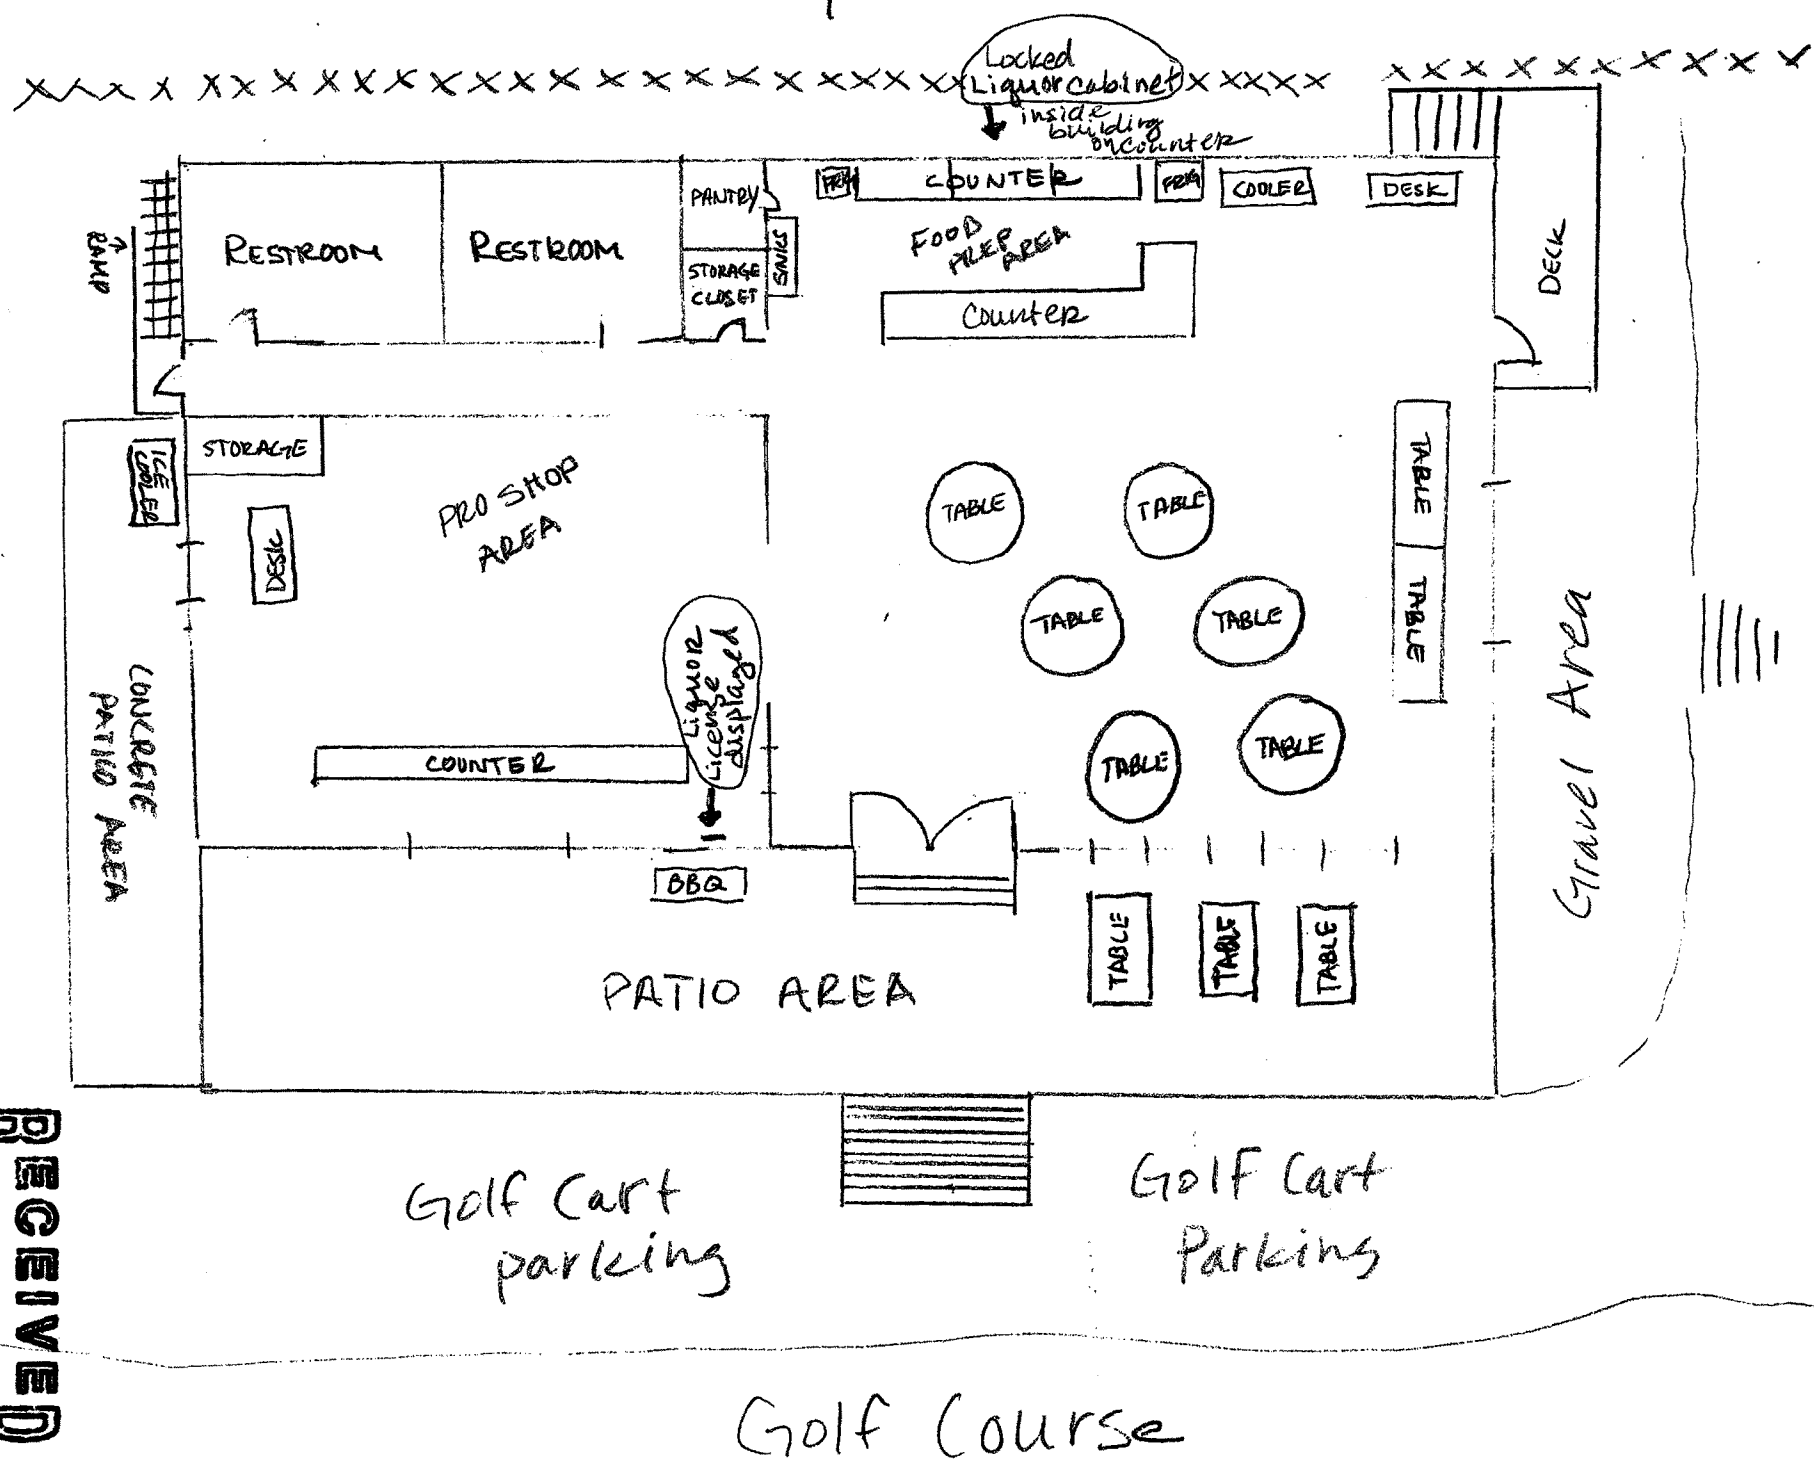 Locked
Liquor cabinet
inside
building
on counter
RAMP
RESTROOM
RESTROOM
PANTRY
STORAGE
CLOSET
SINKS
FRIG
COUNTER
FRIG
COOLER
DESK
FOOD
PREP
AREA
Counter
DECK
STORAGE
ICE
COOLER
DESK
PRO SHOP
AREA
TABLE
TABLE
TABLE
TABLE
TABLE
TABLE
TABLE
TABLE
Liquor
License
displayed
COUNTER
CONCRETE
PATIO AREA
Gravel Area
BBQ
PATIO AREA
TABLE
TABLE
TABLE
Golf Cart
parking
Golf Cart
Parking
Golf Course
RECEIVED